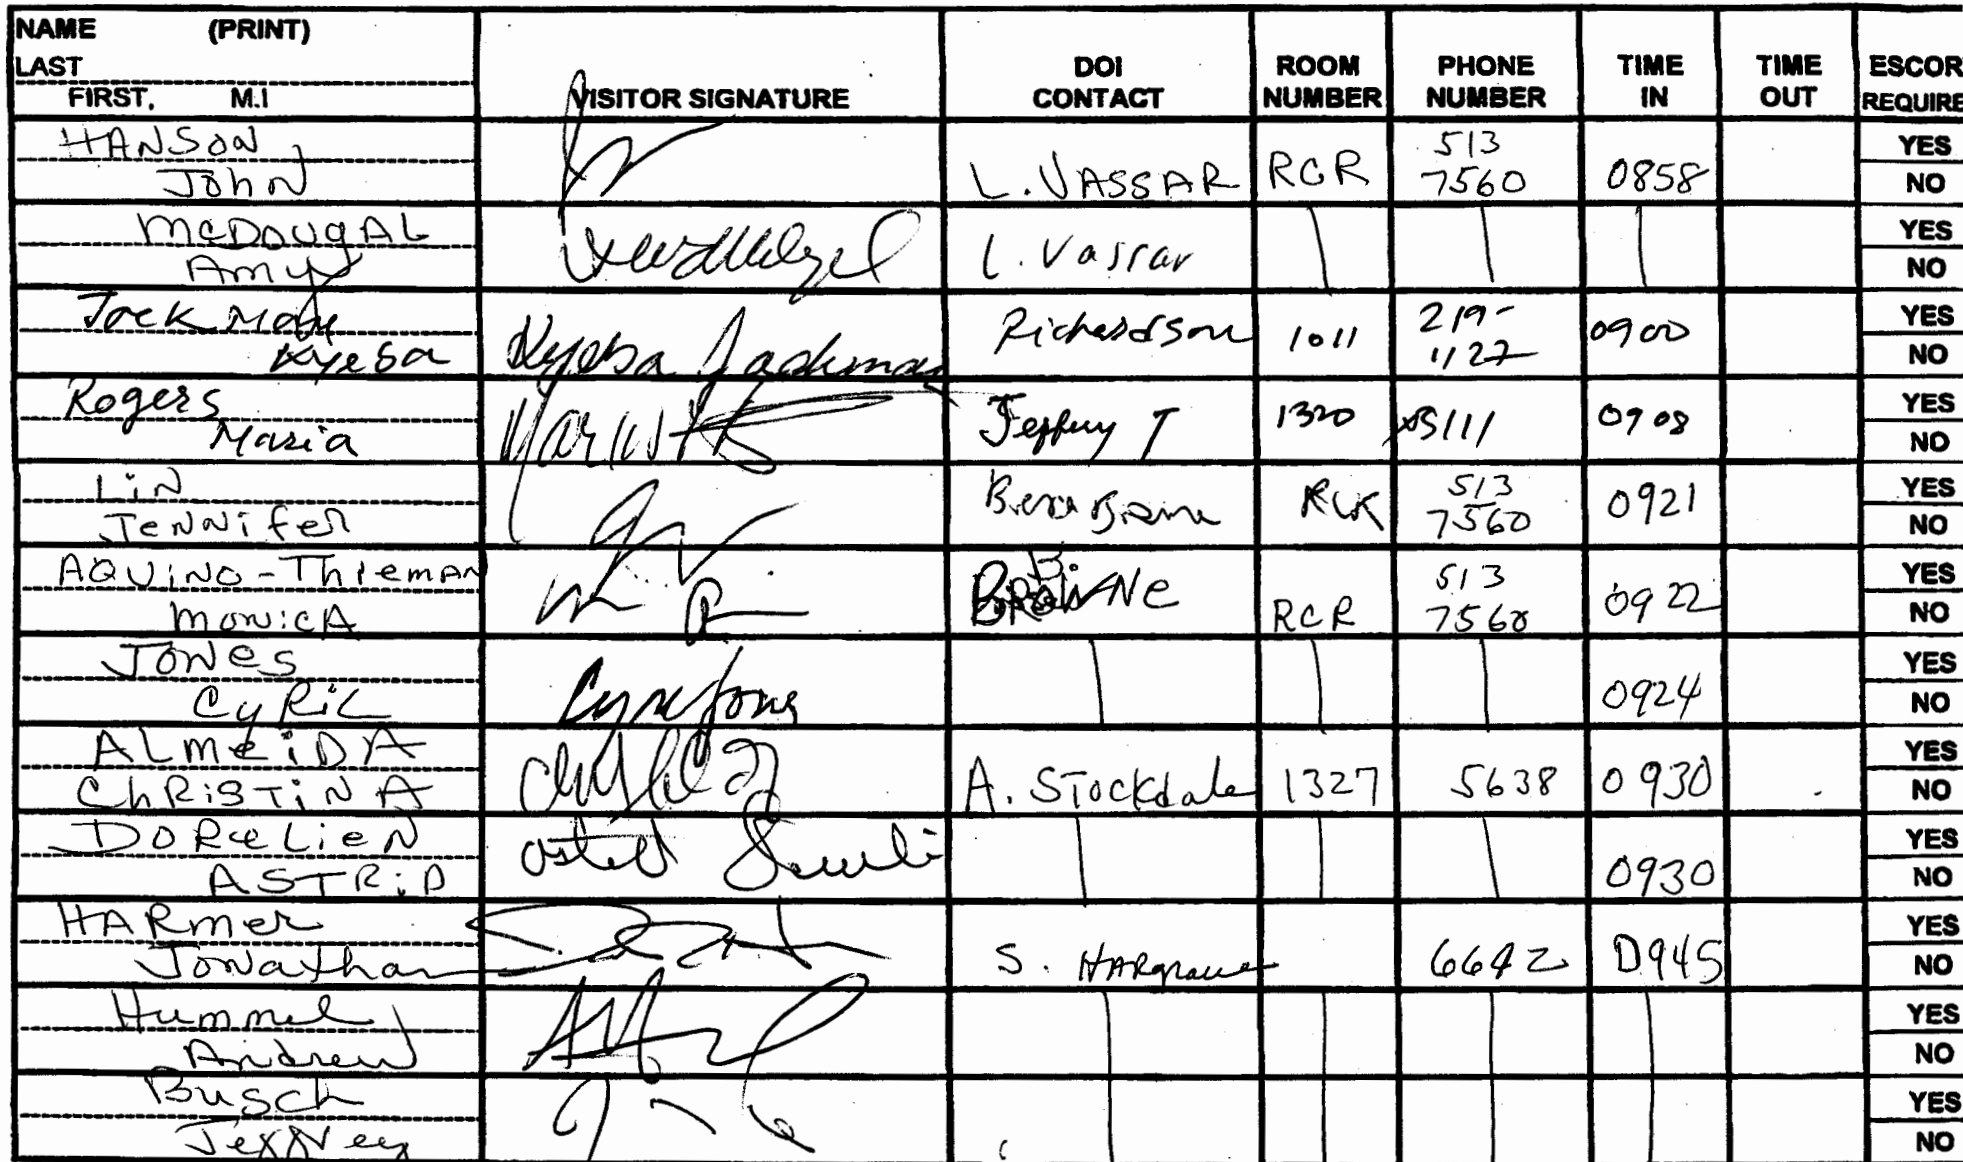 NAME (PRINT)
LAST
FIRST, M.I
VISITOR SIGNATURE
DOI CONTACT
ROOM NUMBER
PHONE NUMBER
TIME IN
TIME OUT
ESCOR
REQUIRE
HANSON
John
L. VASSAR
RCR
513
7560
0858
YES
NO
McDOUGAL
Amy
L. Vassar
YES
NO
Jackman
Kyesa
Kyesa Jackman
Richardson
1011
219-
1127
0900
YES
NO
Rogers
Maria
Jeffrey T
1320
0908
YES
NO
LiN
JeNNifer
513
7560
0921
YES
NO
AQUiNO-ThiemAN
MoNicA
B.
BROWNe
RCR
513
7560
0922
YES
NO
JONes
CyRiL
Cyril Jones
0924
YES
NO
ALmeiDA
ChRiSTiNA
A. Stockdale
1327
5638
0930
YES
NO
DOReLieN
ASTRiD
0930
YES
NO
HARmer
Jonathan
S. HARgrave
6642
0945
YES
NO
Hummel
Andrew
YES
NO
Busch
Jeffrey
YES
NO